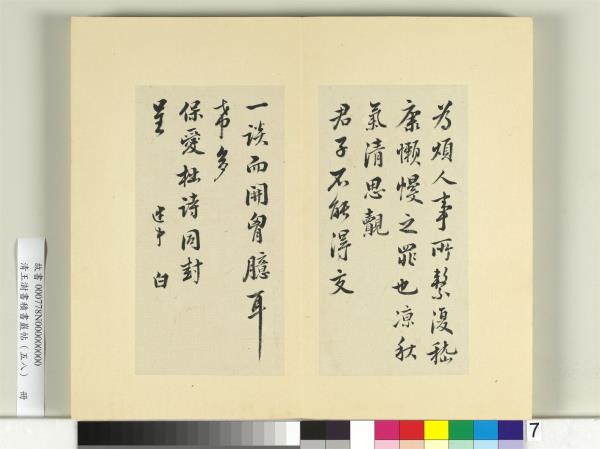 為煩人事所繫復嵇
康懶慢之罪也涼秋
氣清思覿
君子不能得交
一談而開胷臆耳
希多
保愛杜詩同封
呈 建中 白
故書 000778N000000000
清王澍書積書巖帖（五八） 冊
7